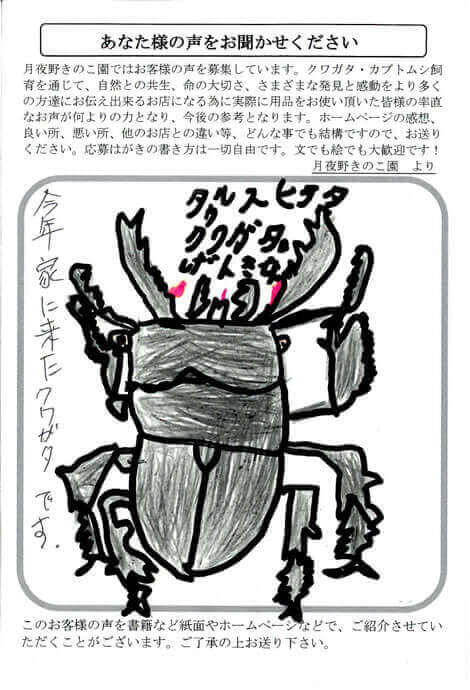 あなた様の声をお聞かせください
月夜野きのこ園ではお客様の声を募集しています。クワガタ・カブトムシ飼
育を通じて、自然との共生、命の大切さ、さまざまな発見と感動をより多く
の方達にお伝え出来るお店になる為に実際に用品をお使い頂いた皆様の率直
なお声が何よりの力となり、今後の参考となります。ホームページの感想、
良い所、悪い所、他のお店との違い等、どんな事でも結構ですので、お送り
ください。応募はがきの書き方は一切自由です。文でも絵でも大歓迎です！
月夜野きのこ園　より
タウルスヒラタ
クワガタ
今年家に来たクワガタです.
このお客様の声を書籍など紙面やホームページなどで、ご紹介させてい
ただくことがございます。ご了承の上お送り下さい。